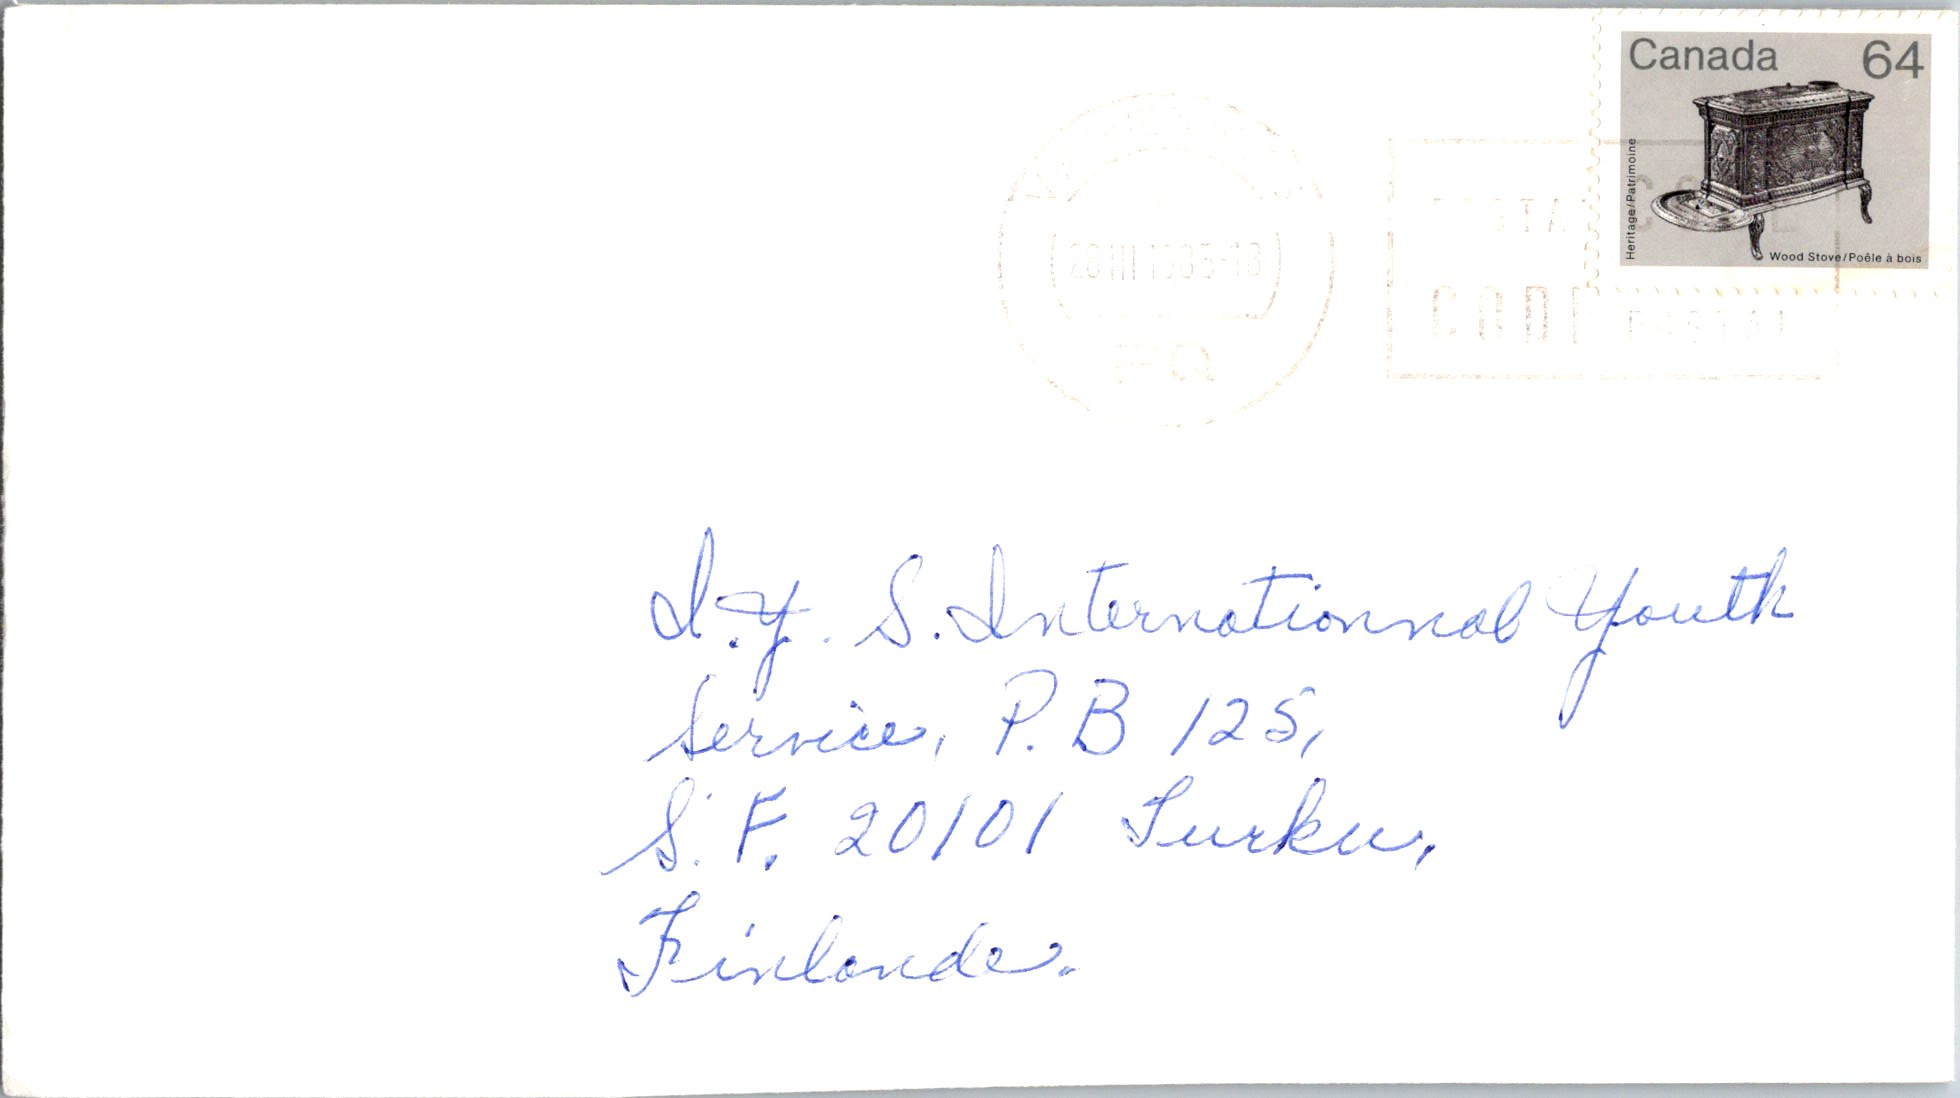 Canada 64
Heritage/Patrimoine
Wood Stove/Poêle à bois
CODE
I.Y.S. Internationnal Youth
Service, P.B 125,
S.F. 20101 Turku,
Finlande.